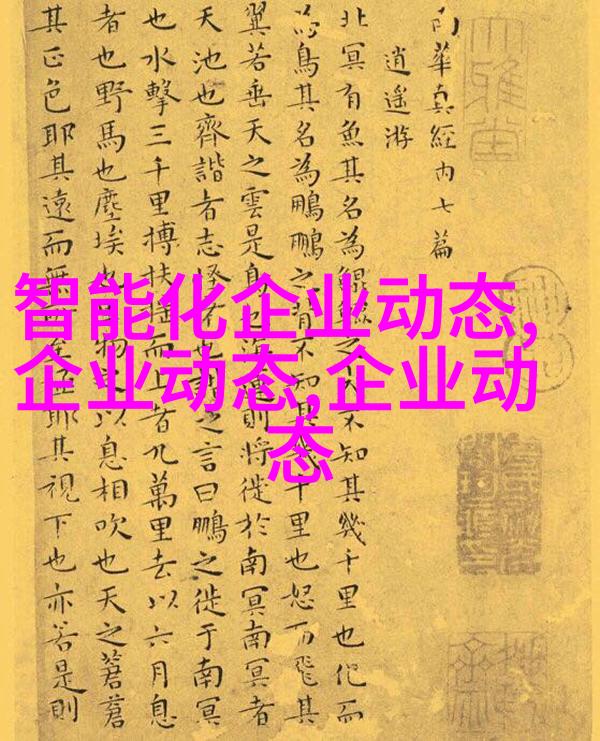 南華真經内七篇
逍遙游
北冥有魚其名為鯤鯤之大不知其幾千里也化而
為鳥其名為鵬鵬之背不知其幾千里也怒而飛其
翼若垂天之雲是鳥也海運則將徙於南冥南冥者
天池也齊諧者志怪者也諧之言曰鵬之徙于南冥
也水擊三千里搏扶搖而上者九萬里去以六月息
者也野馬也塵埃也物以息相吹也天之蒼蒼
其正色耶其遠而無至極耶其視下也亦若是則
智能化企业动态,
企业动态,企业动
态